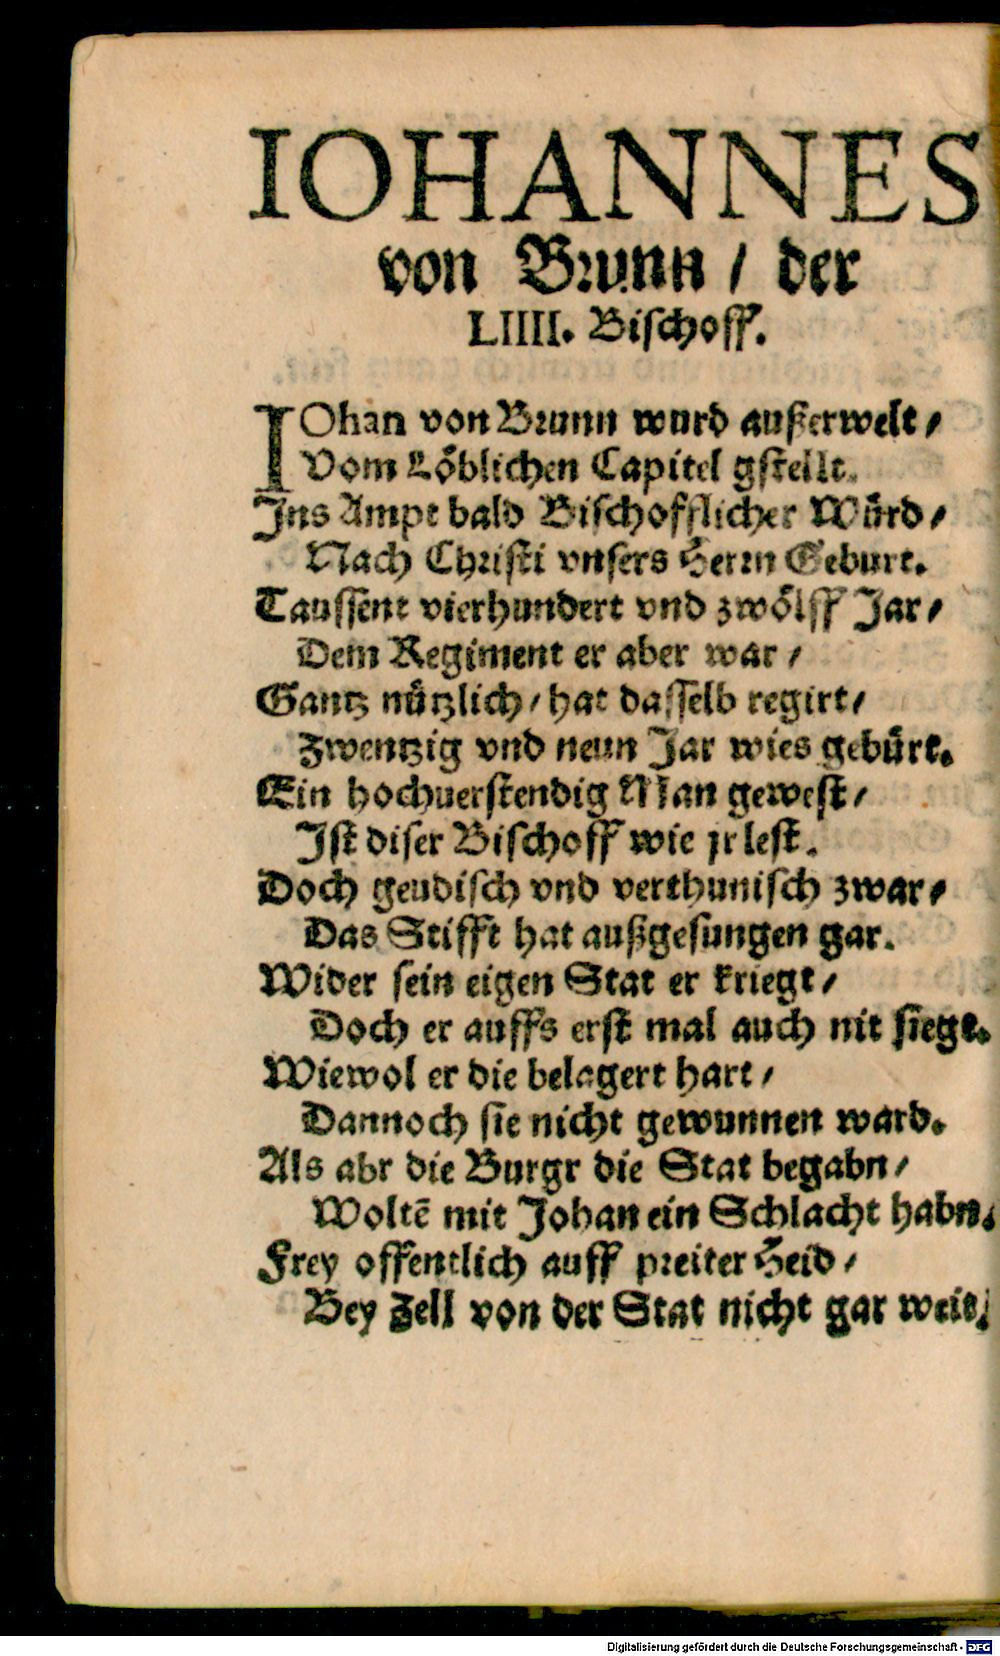 IOHANNES
von Brunn / der
LIIII. Bischoff.
IOhan von Brunn wurd außerwelt /
Vom Löblichen Capitel gstellt.
Jns Ampt bald Bischofflicher Würd /
Nach Christi vnsers Herrn Geburt.
Taussent vierhundert vnd zwölff Jar /
Dem Regiment er aber war /
Gantz nützlich / hat dasselb regirt /
Zwentzig vnd neun Jar wies gebürt.
Ein hochuerstendig Man gewest /
Jst diser Bischoff wie jr lest.
Doch geudisch vnd verthunisch zwar /
Das Stifft hat außgesungen gar.
Wider sein eigen Stat er kriegt /
Doch er auffs erst mal auch nit siegt.
Wiewol er die belagert hart /
Dannoch sie nicht gewunnen ward.
Als abr die Burgr die Stat begabn /
Woltē mit Johan ein Schlacht habn.
Frey offentlich auff preiter Heid /
Bey Zell von der Stat nicht gar weit.
Digitalisierung gefördert durch die Deutsche Forschungsgemeinschaft - DFG